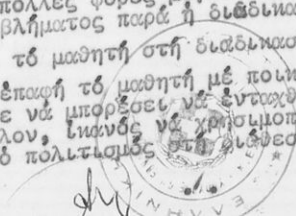 πολλές φορές
βλήματος παρά ἡ διαδικα
τό μαθητή στή διαδικασ
ἐπαφή τό μαθητή μέ ποικ
ε νά μπορέσει νά ἐνταχθ
λον, ἱκανός νά χρησιμοπ
ὁ πολιτισμός στή διάθεσ